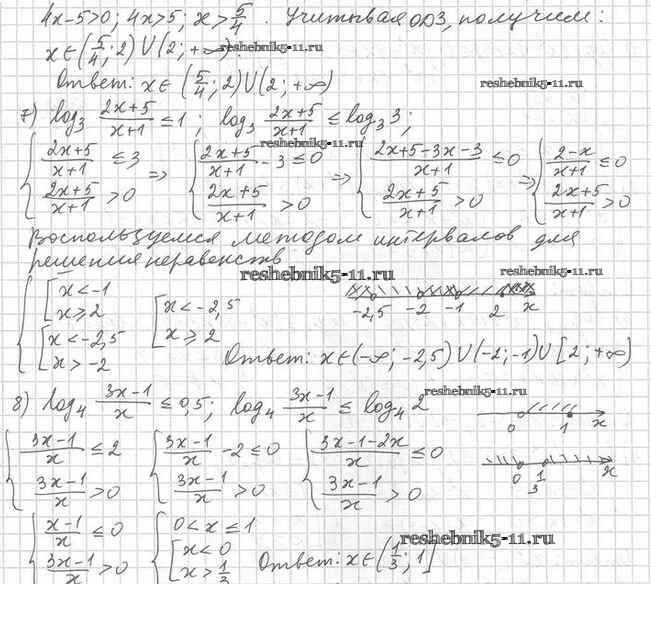 4x-5>0; 4x>5; x>5/4. Учитывая ОДЗ, получим:
x∈(5/4; 2)∪(2; +∞).
reshebnik5-11.ru
Ответ: x∈(5/4; 2)∪(2; +∞)
reshebnik5-11.ru
7) log₃ (2x+5)/(x+1) ≤ 1; log₃ (2x+5)/(x+1) ≤ log₃ 3;
reshebnik5-11.ru
{ (2x+5)/(x+1) ≤ 3 ⇒ { (2x+5)/(x+1) - 3 ≤ 0 ⇒ { (2x+5-3x-3)/(x+1) ≤ 0 ⇒ { (2-x)/(x+1) ≤ 0
(2x+5)/(x+1) > 0 (2x+5)/(x+1) > 0 (2x+5)/(x+1) > 0 (2x+5)/(x+1) > 0
Воспользуемся методом интервалов для
решения неравенств
reshebnik5-11.ru
reshebnik5-11.ru
{ [ x<-1 [ x<-2,5
x≥2 x≥2
[ x<-2,5
x>-2
-2,5 -2 -1 2 x
Ответ: x∈(-∞; -2,5)∪(-2; -1)∪[2; +∞)
reshebnik5-11.ru
8) log₄ (3x-1)/x ≤ 0,5; log₄ (3x-1)/x ≤ log₄ 2
0 1 x
{ (3x-1)/x ≤ 2 { (3x-1)/x - 2 ≤ 0 { (3x-1-2x)/x ≤ 0
(3x-1)/x > 0 (3x-1)/x > 0 (3x-1)/x > 0
0 1/3 x
{ (x-1)/x ≤ 0 { 0<x≤1
(3x-1)/x > 0 [ x<0
x>1/3
reshebnik5-11.ru
Ответ: x∈(1/3; 1]